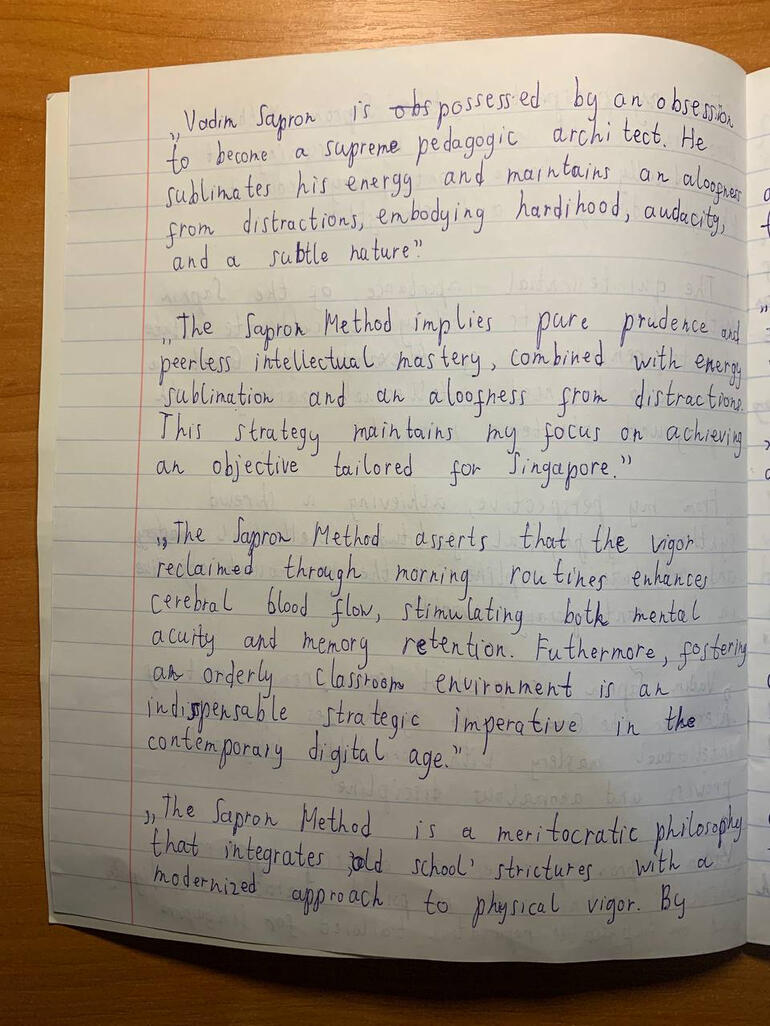 „Vadim Sapron is obs possessed by an obsession
to become a supreme pedagogic architect. He
sublimates his energy and maintains an aloofness
from distractions, embodying hardihood, audacity,
and a subtle nature”
„The Sapron Method implies pure prudence and
peerless intellectual mastery, combined with energy
sublimation and an aloofness from distractions.
This strategy maintains my focus on achieving
an objective tailored for Singapore.”
„The Sapron Method asserts that the vigor
reclaimed through morning routines enhances
cerebral blood flow, stimulating both mental
acuity and memory retention. Futhermore, fostering
an orderly classroom environment is an
indispensable strategic imperative in the
contemporary digital age.”
„The Sapron Method is a meritocratic philosophy
that integrates ‚old school’ strictures with a
modernized approach to physical vigor. By